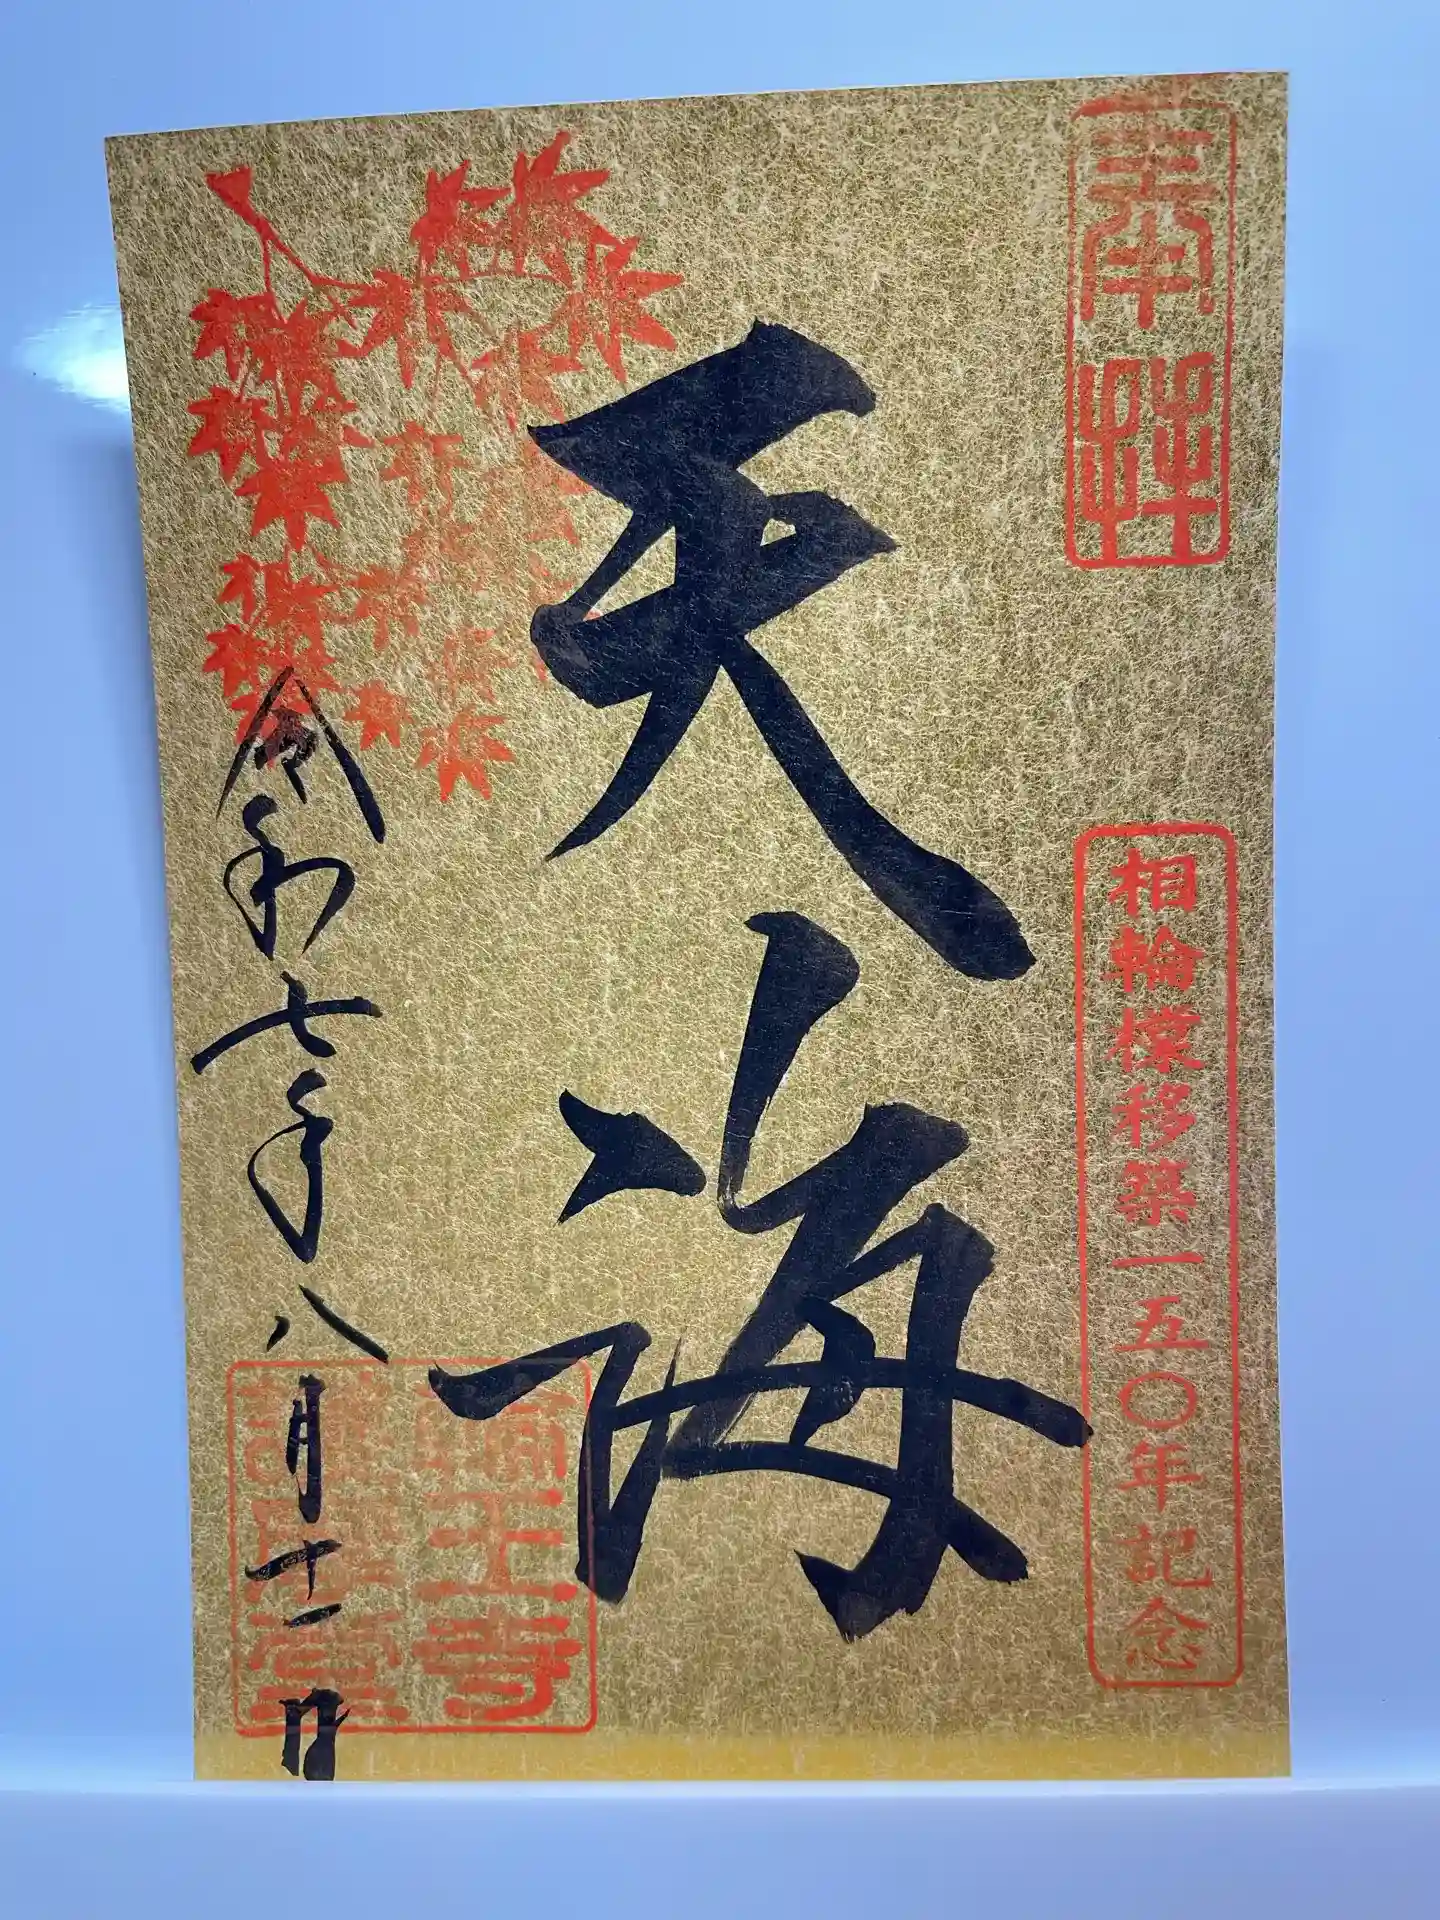 奉拝
相輪橖移築一五〇年記念
天海
令和七年八月十一日
輪王寺